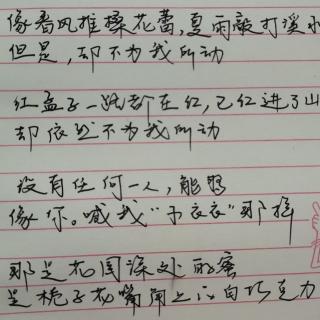 像春风推搡花蕾,夏雨敲打溪水
但是,却不为我所动
红孟子一路都在红,已红进了山
却依然不为我所动
没有任何一人,能够
像你。喊我“予衣衣”那样
那是花园深处的蜜
是栀子花嘴角上的白巧克力